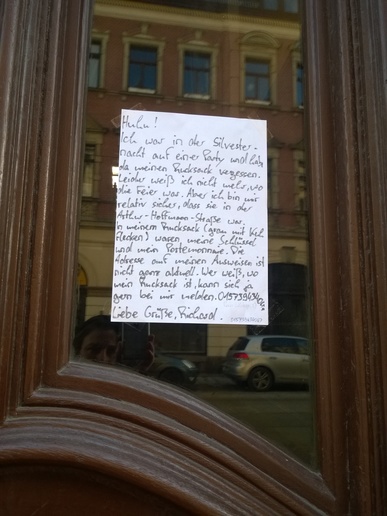 Huhu!
Ich war in der Silvester-
nacht auf einer Party und habe
da meinen Rucksack vergessen.
Leider weiß ich nicht mehr, wo
die Feier war. Aber ich bin mir
relativ sicher, dass sie in der
Arthur-Hoffmann-Straße war.
In meinem Rucksack (grau mit
Flecken) waren meine Schlüssel
und mein Portemonnaie. Die
Adresse auf meinen Ausweisen ist
nicht ganz aktuell. Wer weiß, wo
mein Rucksack ist, kann sich ja
gern bei mir melden.
Liebe Grüße, Richard.